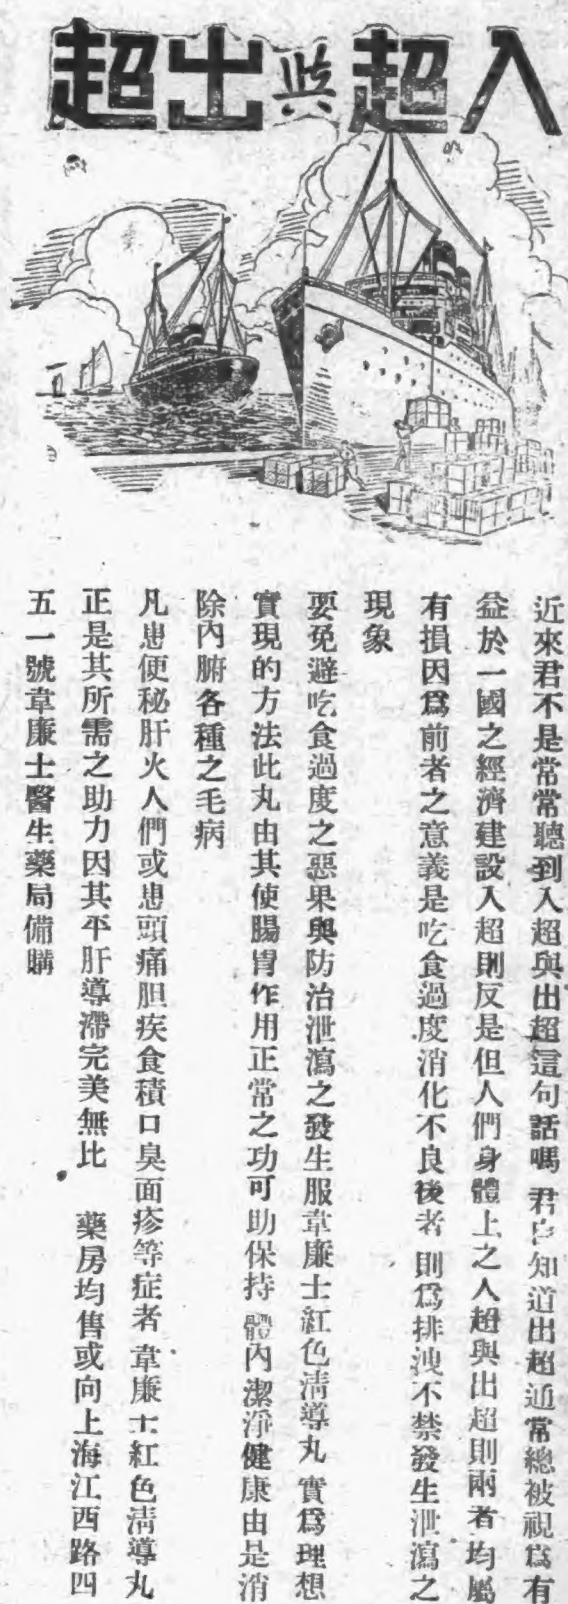 入超與出超
近來君不是常常聽到入超與出超這句話嗎 君自知道出超通常總被視爲有
益於一國之經濟建設入超則反是但人們身體上之入超與出超則兩者均屬
有損因爲前者之意義是吃食過度消化不良後者 則爲排洩不禁發生泄瀉之
現象
要免避吃食過度之惡果與防治泄瀉之發生服韋廉士紅色清導丸 實爲理想
實現的方法此丸由其使腸胃作用正常之功可助保持 體內潔淨健康由是消
除內腑各種之毛病
凡患便秘肝火人們或患頭痛胆疾食積口臭面疹等症者 韋廉士紅色清導丸
正是其所需之助力因其平肝導滯完美無比 藥房均售或向上海江西路四
五一號韋廉士醫生藥局備購